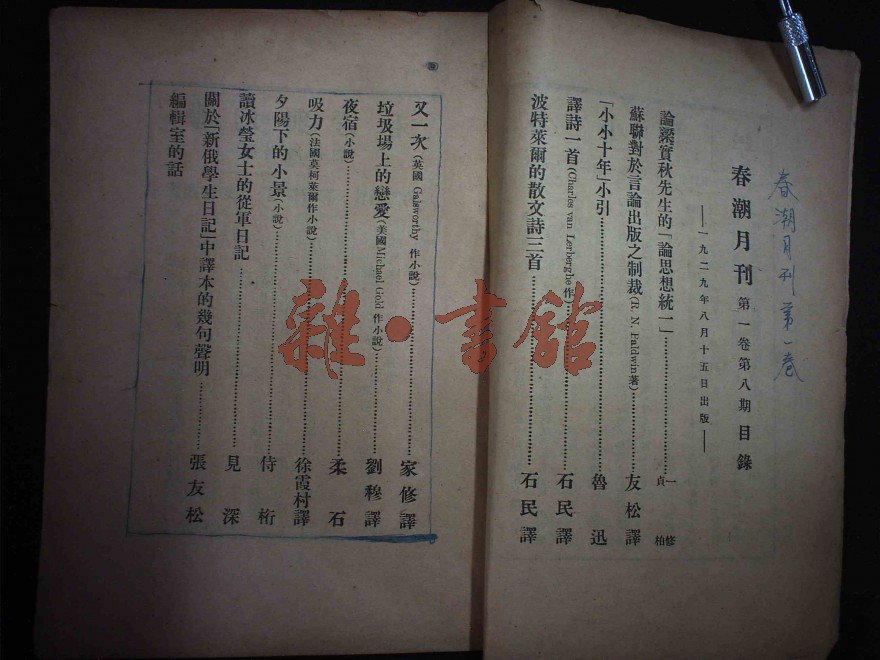 春潮月刊第一卷
春潮月刊 第一卷第八期目錄
——一九二九年八月十五日出版——
論梁實秋先生的「論思想統一」…………一修 貞柏
蘇聯對於言論出版之制裁(R. N. Faldwin著)…………友松譯
「小小十年」小引…………魯迅
譯詩一首(Charles van Lerberghe作)…………石民譯
波特萊爾的散文詩三首…………石民譯
又一次(英國 Galsworthy 作小說)…………家修譯
垃圾場上的戀愛(美國Michael Gold 作小說)…………劉穆譯
夜宿(小說)…………柔石
吸力(法國莫柯萊爾作小說)…………徐霞村譯
夕陽下的小景(小說)…………侍桁
讀冰瑩女士的從軍日記…………見深
關於「新俄學生日記」中譯本的幾句聲明…………張友松
編輯室的話
雜·書館